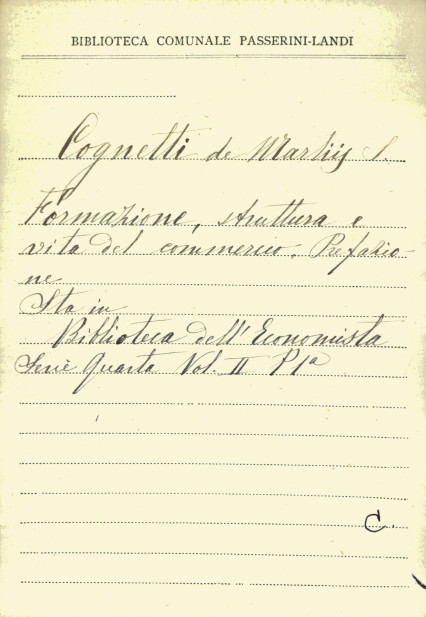 BIBLIOTECA COMUNALE PASSERINI-LANDI
Cognetti de Martiis S.
Formazione, struttura e
vita del commercio. Prefazio-
ne
Sta in
Biblioteca dell'Economista
Serie Quarta Vol. II P 1ª
C.